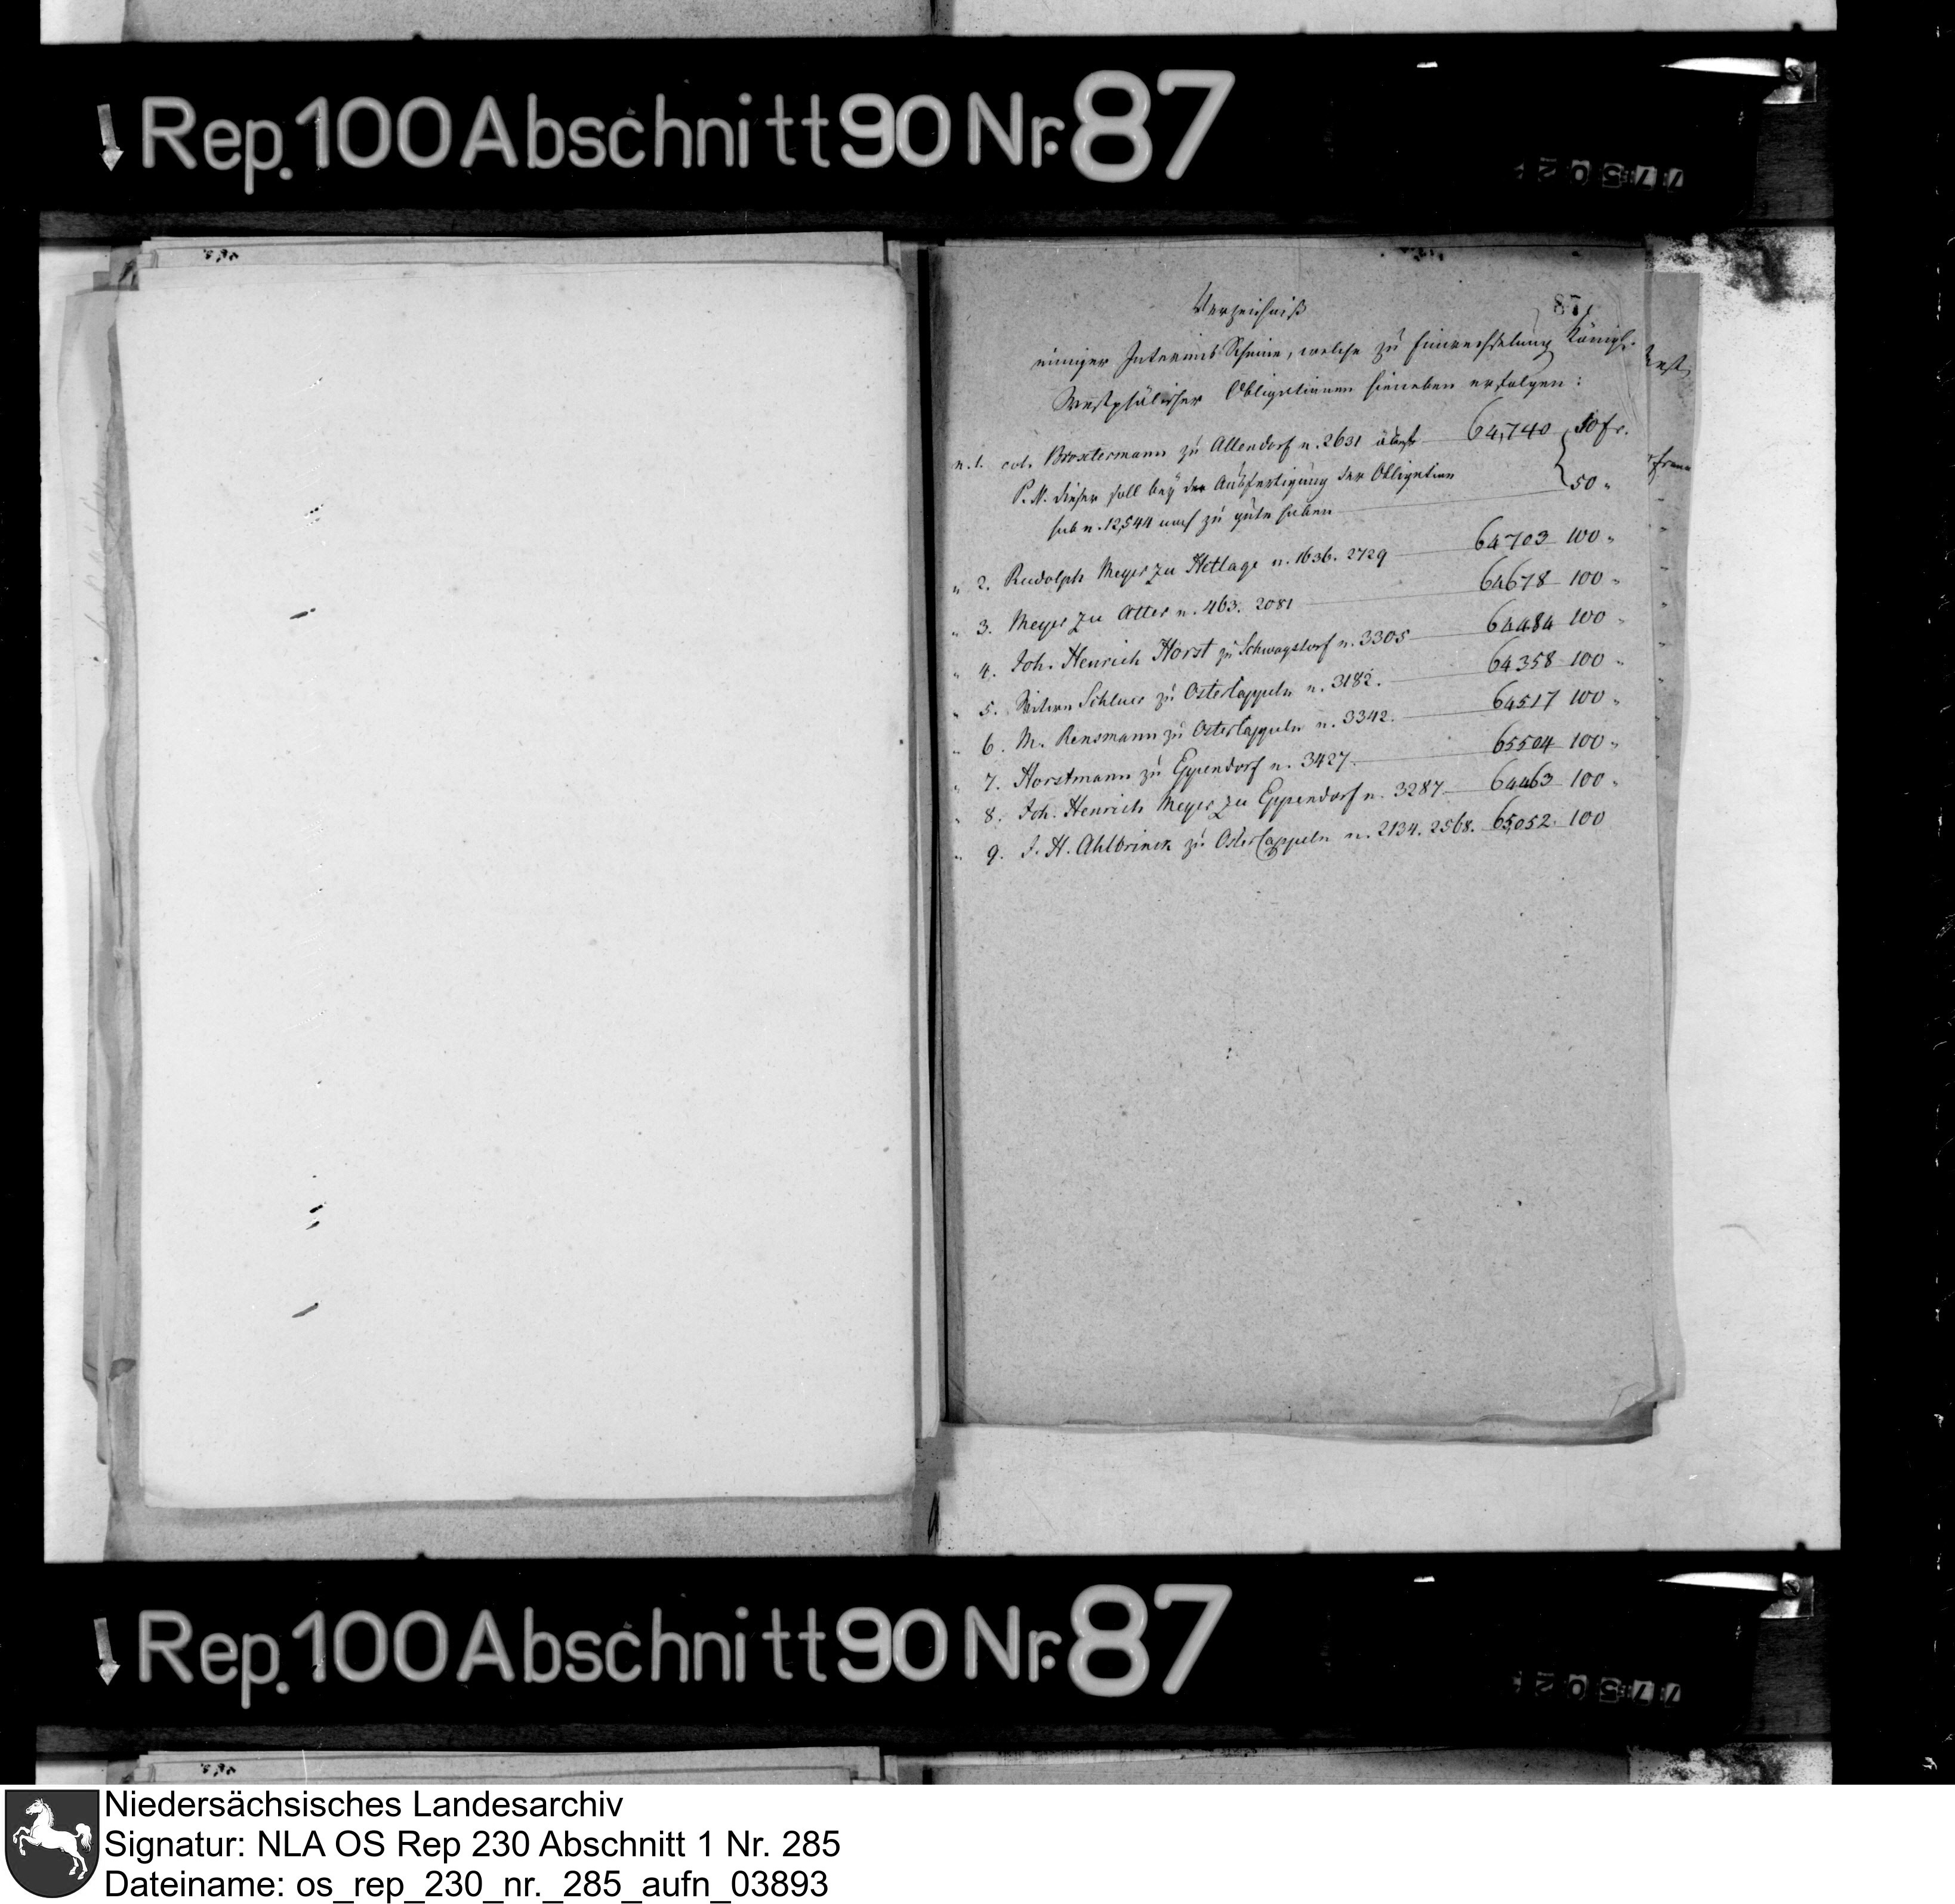 Rep. 100 Abschnitt 90 Nr. 87
87
Verzeichniß
einiger Interims Scheine, welche zu Einwechselung Königl.
Westphälischer Obligationen hieneben erfolgen:
n. 1. col. Broxtermann zu Allendorf n. 2631 64,740 50 fr.
P. N. dieser soll bey der Ausfertigung der Obligation
sub n. 12,544 noch zu gute haben 50 "
" 2. Rudolph Meyer zu Hetlage n. 1636. 2729 64703 100 "
" 3. Meyer zu Atter n. 463. 2081 64678 100 "
" 4. Joh. Henrich Horst zu Schwagstorf n. 3305 64484 100 "
" 5. Schluer zu Ostercappeln n. 3182. 64358 100 "
" 6. M. Rensmann zu Ostercappeln n. 3342. 64517 100 "
" 7. Horstmann zu Eppendorf n. 3427. 65504 100 "
" 8. Joh. Henrich Meyer zu Eppendorf n. 3287 64463 100 "
" 9. J. H. Ahlbrinck zu Ostercappeln n. 2134. 2568. 65,052. 100
Rep. 100 Abschnitt 90 Nr. 87
Niedersächsisches Landesarchiv
Signatur: NLA OS Rep 230 Abschnitt 1 Nr. 285
Dateiname: os_rep_230_nr._285_aufn_03893